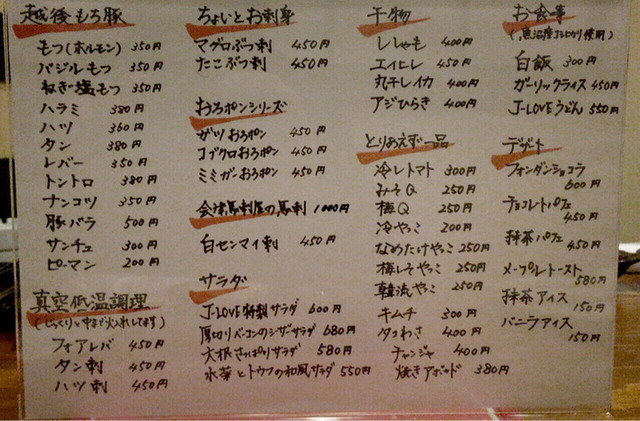 越後もち豚
もつ(ホルモン) 350円
バジルもつ 350円
ねぎ塩もつ 350円
ハラミ 380円
ハツ 360円
タン 380円
レバー 350円
トントロ 380円
ナンコツ 350円
豚バラ 500円
サンチェ 300円
ピーマン 200円
真空低温調理
(じっくりと中まで火入れしてます)
フォアレバ 450円
タン刺 450円
ハツ刺 450円
ちょいとお刺身
マグロぶつ刺 450円
たこぶつ刺 450円
おろポンシリーズ
ガツおろポン 450円
コブクロおろポン 450円
ミミガーおろポン 450円
会津馬刺屋の馬刺 1000円
白センマイ刺 450円
サラダ
J-LOVE特製サラダ 600円
厚切りベーコンのシーザーサラダ 680円
大根さっぱりサラダ 580円
水菜とトウフの和風サラダ 550円
干物
ししゃも 400円
エイヒレ 450円
丸干しイカ 400円
アジひらき 400円
とりあえず一品
冷しトマト 300円
みそQ 250円
梅Q 250円
冷やっこ 200円
なめたけやっこ 250円
梅しそやっこ 250円
韓流やっこ 250円
キムチ 300円
タコわさ 400円
チャンジャ 400円
焼きアボカド 380円
お食事
(魚沼産コシヒカリ使用)
白飯 300円
ガーリックライス 450円
J-LOVEうどん 550円
デザート
フォンダンショコラ
600円
チョコレートパフェ
450円
抹茶パフェ
450円
メープルトースト
580円
抹茶アイス
150円
バニラアイス
150円